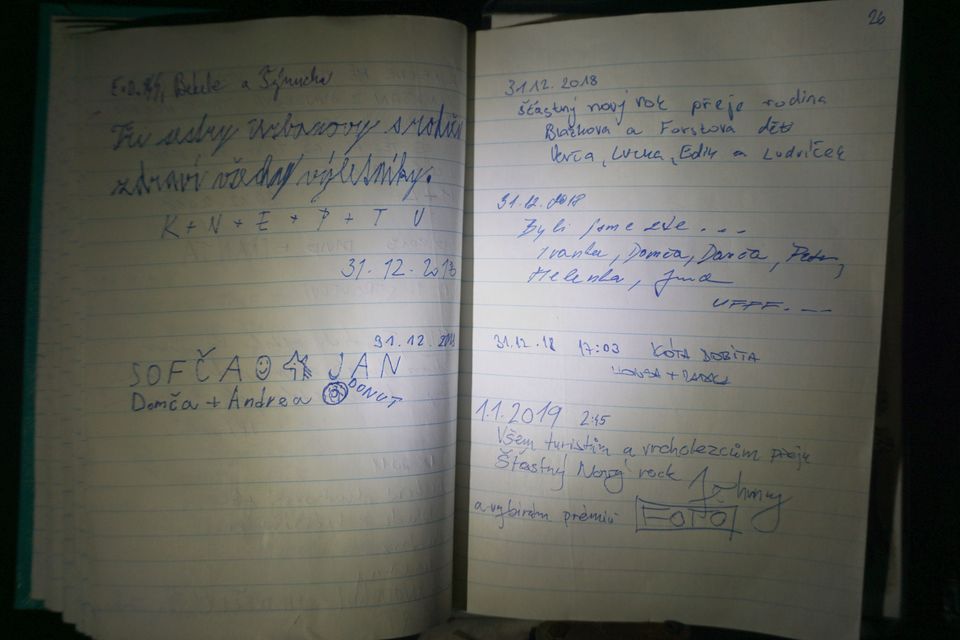 Bebele a Šmucha
Tři sestry Urbanovy s rodin
zdraví všechny výletníky.
K + N + E + P + T U
31.12.2018
31.12.2018
SOFČA JAN
Domča + Andrea DONUT
26
31.12.2018
šťastný nový rok přeje rodina
Blažkova a Forstova děti
Verča, Lucka, Edik a Ludvíček
31.12.2018
Byli jsme zde...
Ivanka, Domča, Danča, Petr,
Helenka, Jana
UFFF...
31.12.18 17:03 KÓTA DOBITA
HONZA +
1.1.2019 2:45
Všem turistům a vrcholezcům přeje
Šťastný Nový rock Johnny
a vybírám prémiu FOTO